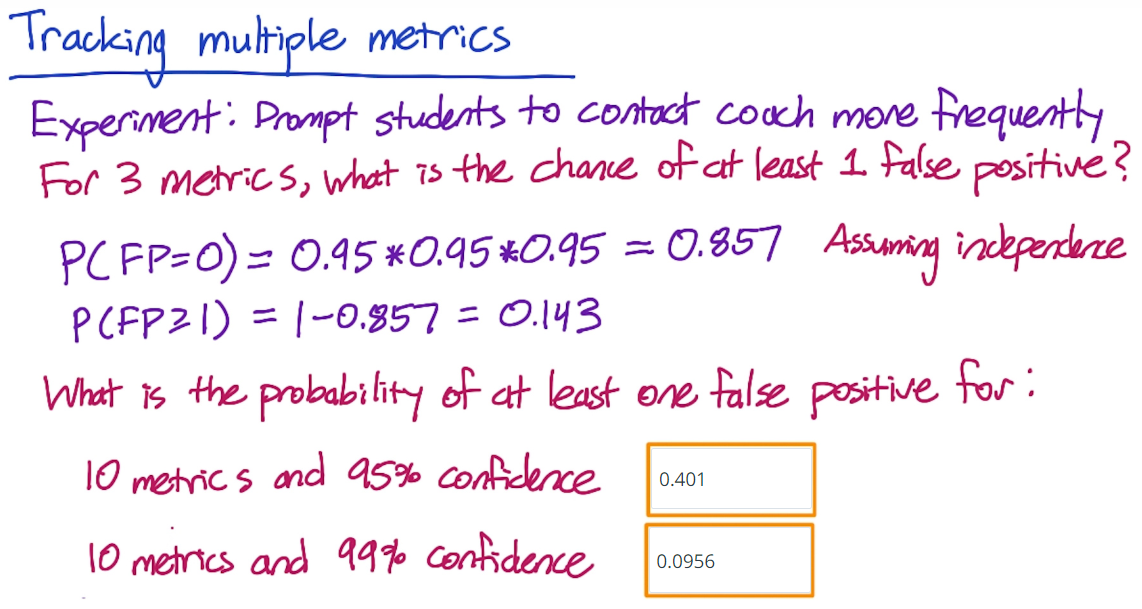 Tracking multiple metrics
Experiment: Prompt students to contact coach more frequently
For 3 metrics, what is the chance of at least 1 false positive?
P(FP=0) = 0.95*0.95*0.95 = 0.857 Assuming independence
P(FP≥1) = 1-0.857 = 0.143
What is the probability of at least one false positive for:
10 metrics and 95% confidence 0.401
10 metrics and 99% confidence 0.0956